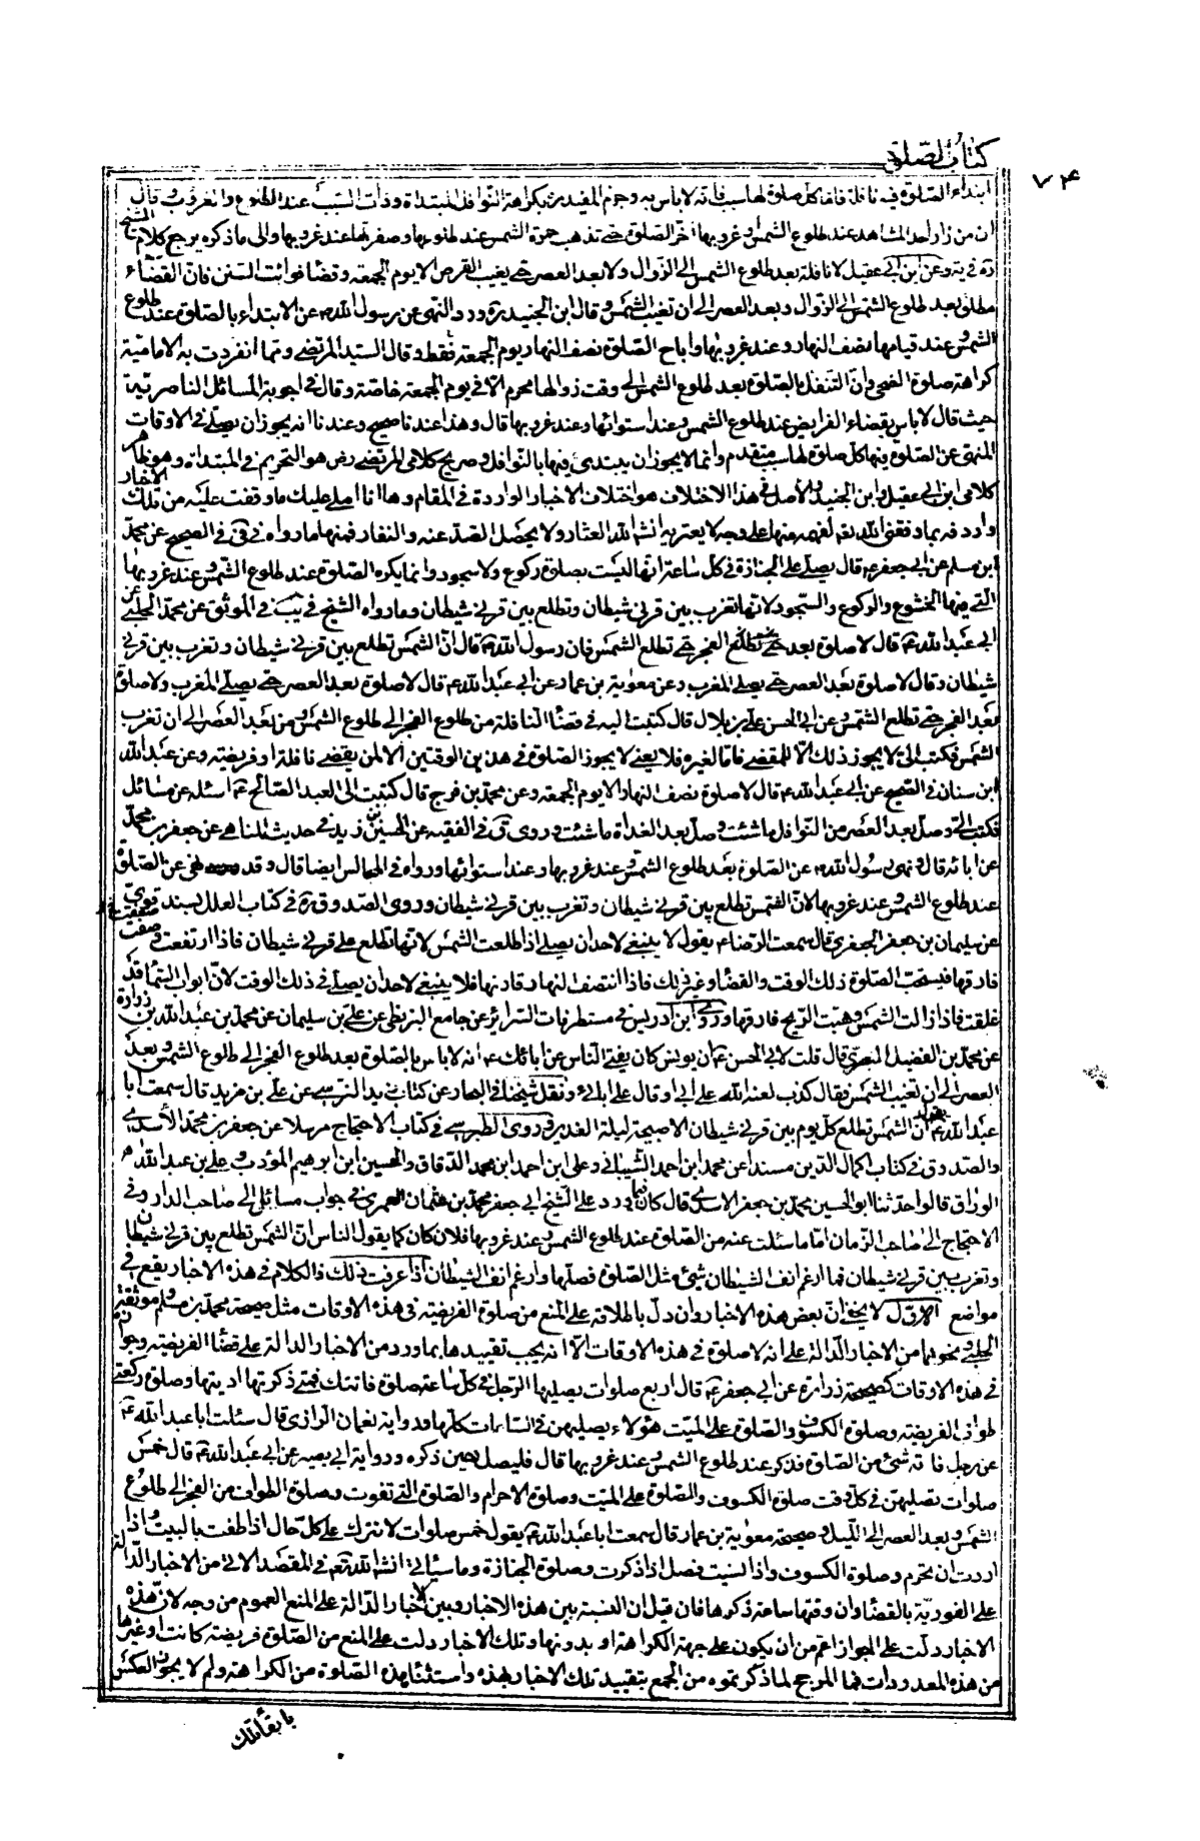 كتاب الصلوة
٧٤
ابتداء الصلوة فيه نافلة فاما كل صلوة لها سبب فانه لا باس به وجزم المفيد ره بكراهة النوافل المبتداة وذات السبب عند الطلوع والغروب وقال
ان من زار احد المشاهد عند طلوع الشمس او غروبها اخر الصلوة حتى تذهب حمرة الشمس عند طلوعها وصفرتها عند غروبها والى ما ذكره يرجع كلام الشيخ
ره في يه وعن ابن ابي عقيل لا نافلة بعد طلوع الشمس الى الزوال ولا بعد العصر حتى يغيب القرص الا يوم الجمعه وقضا فوائت السنن فان القضاء
مطلق بعد طلوع الشمس الى الزوال وبعد العصر الى ان تغيب الشمس وقال ابن الجنيد ره ورد النهى عن رسول الله ص عن الابتداء بالصلوة عند طلوع
الشمس وعند قيامها نصف النهار وعند غروبها واباح الصلوة نصف النهار يوم الجمعة فقط وقال السيد المرتضى ومما انفردت به الامامية
كراهة صلوة الضحى وان التنفل بالصلوة بعد طلوع الشمس الى وقت زوالها محرم الا في يوم الجمعة خاصة وقال في اجوبة المسائل الناصرية
حيث قال لا باس بقضاء الفرايض عند طلوع الشمس وعند استوائها وعند غروبها قال وهذا عندنا صحيح وعندنا انه يجوز ان يصلى في الاوقات
المنهى عن الصلوة فيها كل صلوة لها سبب متقدم وانما لا يجوز ان يبتدئ فيها بالنوافل وصريح كلامى المرتضى رض هو التحريم في المبتداة وهو ظاهر
كلامى ابن ابي عقيل وابن الجنيد والاصل في هذا الاختلاف هو اختلاف الاخبار الواردة في المقام وها انا املى عليك ما وقفت عليه من تلك الاخبار
واردفه بما وفقنى الله تعه لفهمه منها على وجه لا يعتريه انشاء الله العثار ولا يحصل الصد عنه والنفار فمنها ما رواه في في في الصحيح عن محمد
ابن مسلم عن ابي جعفر ع قال يصلى على الجنازة في كل ساعة انها ليست بصلوة ركوع ولا سجود وانما يكره الصلوة عند طلوع الشمس وعند غروبها
التى فيها الخشوع والركوع والسجود لانها تغرب بين قرني شيطان وتطلع بين قرني شيطان وما رواه الشيخ في يب في الموثق عن محمد الحلبي عن
ابي عبد الله ع قال لا صلوة بعد الفجر حتى تطلع الشمس فان رسول الله ص قال ان الشمس تطلع بين قرني شيطان وتغرب بين قرني
شيطان وقال لا صلوة بعد العصر حتى يصلى المغرب وعن معوية بن عمار عن ابي عبد الله ع قال لا صلوة بعد العصر حتى يصلى المغرب ولا صلوة
بعد الفجر حتى تطلع الشمس وعن ابي الحسن على بن بلال قال كتبت اليه في قضا النافلة من طلوع الفجر الى طلوع الشمس ومن بعد العصر الى ان تغرب
الشمس فكتب الى لا يجوز ذلك الا للمقضى فاما لغيره فلا يعنى لا يجوز الصلوة في هذين الوقتين الا لمن يقضى نافلة او فريضة وعن عبد الله
ابن سنان في الصحيح عن ابي عبد الله ع قال لا صلوة نصف النهار الا يوم الجمعه وعن محمد بن فرج قال كتبت الى العبد الصالح ع اسئله عن مسائل
فكتب الى وصل بعد العصر من النوافل ما شئت وصل بعد الغداة ما شئت وروى ق في الفقيه عن الحسين بن زيد في حديث المناهى عن جعفر بن محمد
عن ابائه قال ونهى رسول الله ص عن الصلوة بعد طلوع الشمس وعند غروبها وعند استوائها ورواه في المجالس ايضا قال وقد نهى عن الصلوة
عند طلوع الشمس وعند غروبها لان الشمس تطلع بين قرني شيطان وتغرب بين قرني شيطان وروى الصدوق ره في كتاب العلل بسند قوى
عن سليمان بن جعفر الجعفرى قال سمعت الرضا ع يقول لا ينبغى لاحد ان يصلى اذا طلعت الشمس لانها تطلع على قرني شيطان فاذا ارتفعت وصفت
فارقها فيستحب الصلوة ذلك الوقت والقضا وغير ذلك فاذا انتصف النهار قارنها فلا ينبغى لاحد ان يصلى في ذلك الوقت لان ابواب السماء قد
غلقت فاذا زالت الشمس وهبت الريح فارقها وروى ابن ادريس في مستطرفات السرائر عن جامع البزنطى عن على بن سليمان عن محمد بن عبد الله بن زرارة
عن محمد بن الفضيل البصرى قال قلت لابي الحسن ع ان يونس كان يفتى الناس عن ابائك ع انه لا باس بالصلوة بعد طلوع الفجر الى طلوع الشمس وبعد
العصر الى ان تغيب الشمس فقال كذب لعنه الله على ابى او قال على ابائى ونقل شيخنا في البحار عن كتاب زيد النرسى عن على بن مزيد قال سمعت ابا
عبد الله ع يقول ان الشمس تطلع كل يوم بين قرني شيطان الا صبيحة ليلة القدر وروى الطبرسى في كتاب الاحتجاج مرسلا عن جعفر بن محمد الاسدى
والصدوق في كتاب اكمال الدين مسندا عن محمد ابن احمد الشيباني وعلى ابن احمد ابن محمد الدقاق والحسين ابن ابرهيم المؤدب وعلى بن عبد الله
الوراق قالوا حدثنا ابو الحسين محمد بن جعفر الاسدى قال كان فيما ورد على الشيخ ابي جعفر محمد بن عثمان العمرى في جواب مسائلى الى صاحب الدار وفي
الاحتجاج الى صاحب الزمان اما ما سئلت عنه من الصلوة عند طلوع الشمس وعند غروبها فلان كان كما يقول الناس ان الشمس تطلع بين قرني شيطان
وتغرب بين قرني شيطان فما ارغم انف الشيطان شئ مثل الصلوة فصلها وارغم انف الشيطان اذا عرفت ذلك فالكلام في هذه الاخبار يقع في
مواضع الاول لا يخفى ان بعض هذه الاخبار وان دل باطلاقه على المنع من صلوة الفريضة في هذه الاوقات مثل صحيحة محمد بن مسلم وموثقة
الحلبي ونحوهما من الاخبار الدالة على انه لا صلوة في هذه الاوقات الا انه يجب تقييدها بما ورد من الاخبار الدالة على قضاء الفريضة وجوازه
في هذه الاوقات كصحيحة زرارة عن ابي جعفر ع قال اربع صلوات يصليها الرجل في كل ساعة صلوة فاتتك فمتى ذكرتها اديتها وصلوة ركعتى
طواف الفريضه وصلوة الكسوف والصلوة على الميت هؤلاء يصليهن في الساعات كلها ورواية نعمان الرازى قال سئلت ابا عبد الله ع
عن رجل فاته شئ من الصلوة فذكر عند طلوع الشمس وعند غروبها قال فليصل حين ذكره ورواية ابي بصير عن ابي عبد الله ع قال خمس
صلوات تصليهن في كل وقت صلوة الكسوف والصلوة على الميت وصلوة الاحرام والصلوة التى تفوت وصلوة الطواف من الفجر الى طلوع
الشمس وبعد العصر الى الليل وصحيحة معوية بن عمار قال سمعت ابا عبد الله ع يقول خمس صلوات لا تترك على كل حال اذا طفت بالبيت واذا
اردت ان تحرم وصلوة الكسوف واذا نسيت فصل اذا ذكرت وصلوة الجنازة وما سياتى انشاء الله تعه في المقصد الاتي من الاخبار الدالة
على الفورية بالقضا وان وقتها ساعة ذكرها فان قيل ان النسبة بين هذه الاخبار وبين الاخبار الدالة على المنع العموم من وجه لان هذه
الاخبار دلت على الجواز اعم من ان يكون على جهة الكراهة او بدونها وتلك الاخبار دلت على المنع من الصلوة فريضة كانت او غيرها
من هذه المعدودات فما المرجح لما ذكرتموه من الجمع بتقييد تلك الاخبار بهذه واستثناء هذه الصلوة من الكراهة ولم لا يجوز العكس
بابقاء تلك